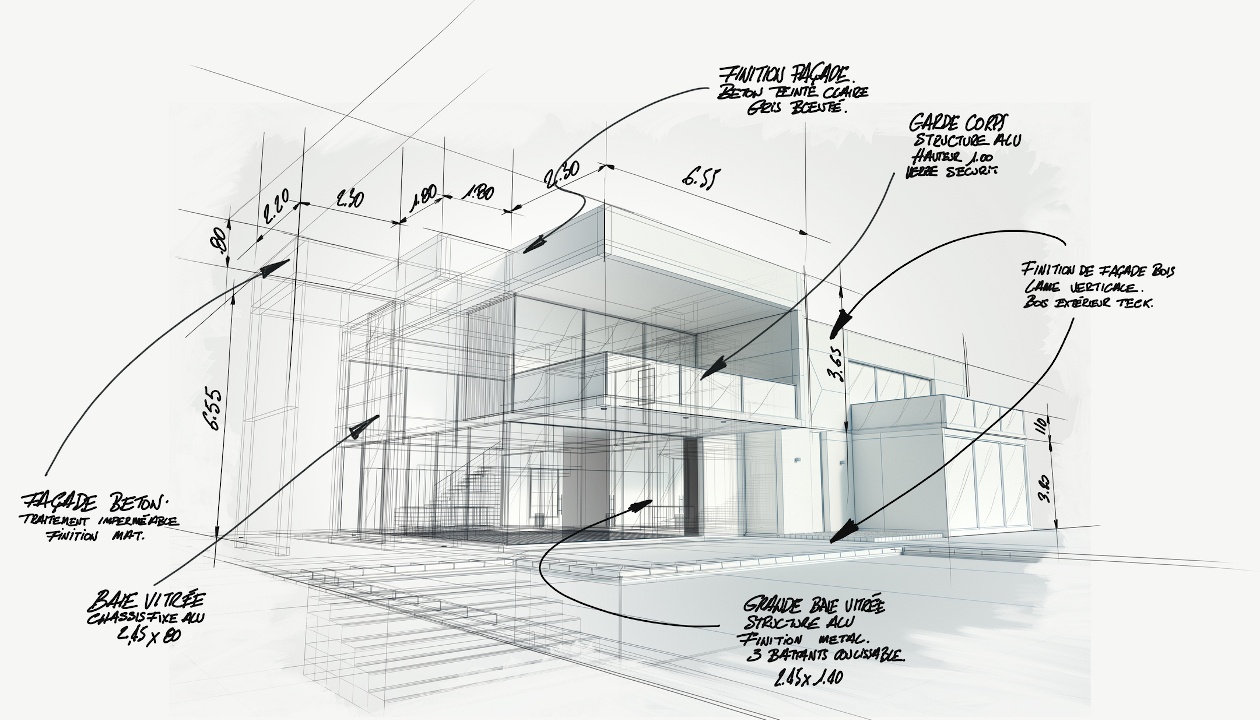 FINITION FAÇADE.
BETON TEINTÉ CLAIRE
GRIS BCENTÉ.
GARDE CORPS
STRUCTURE ALU
HAUTEUR 1.00
VERRE SECURIT
2.30
6.55
2.20
2.30
1.80
1.80
.80
FINITION DE FAÇADE BOIS
LAME VERTICALE.
BOIS EXTÉRIEUR TECK.
3.65
6.55
110
3.80
FAÇADE BETON.
TRAITEMENT IMPERMÉABLE
FINITION MAT.
BAIE VITRÉE
CHASSIS FIXE ALU
2.45 x 80
GRANDE BAIE VITRÉE
STRUCTURE ALU
FINITION METAL.
3 BATTANTS COULISSABLE.
2.45 x 1.40